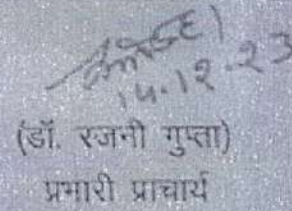 14.12.23
(डॉ. रजनी गुप्ता)
प्रभारी प्राचार्य